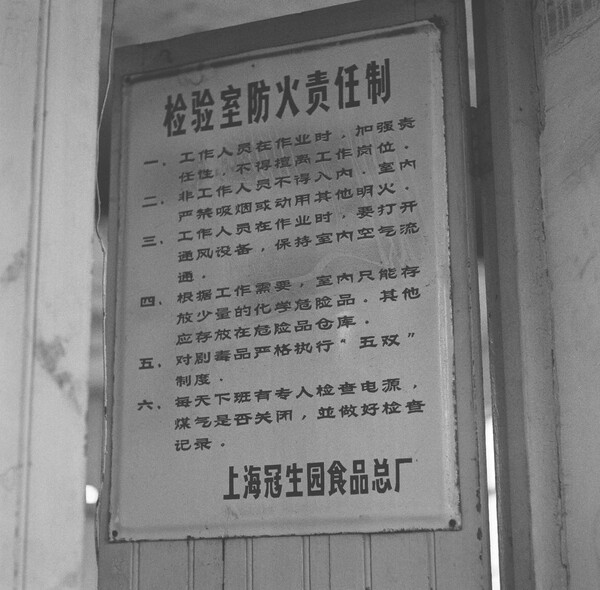 检验室防火责任制
一．工作人员在作业时．加强责
任性．不得擅离工作岗位．
二．非工作人员不得入内．室内
严禁吸烟或动用其他明火．
三．工作人员在作业时，要打开
通风设备，保持室内空气流
通．
四．根据工作需要，室内只能存
放少量的化学危险品．其他
应存放在危险品仓库．
五．对剧毒品严格执行“五双”
制度．
六．每天下班有专人检查电源，
煤气是否关闭，並做好检查
记录．
上海冠生园食品总厂